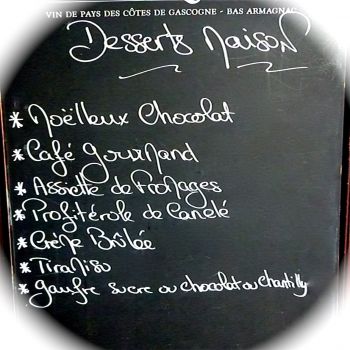 VIN DE PAYS DES CÔTES DE GASCOGNE - BAS ARMAGNAC
Desserts Maison
* Moëlleux Chocolat
* Café gourmand
* Assiette de Fromages
* Profitérole de Canelé
* Crèpe Brûlée
* Tiramiso
* gaufre sucre ou chocolat ou chantilly